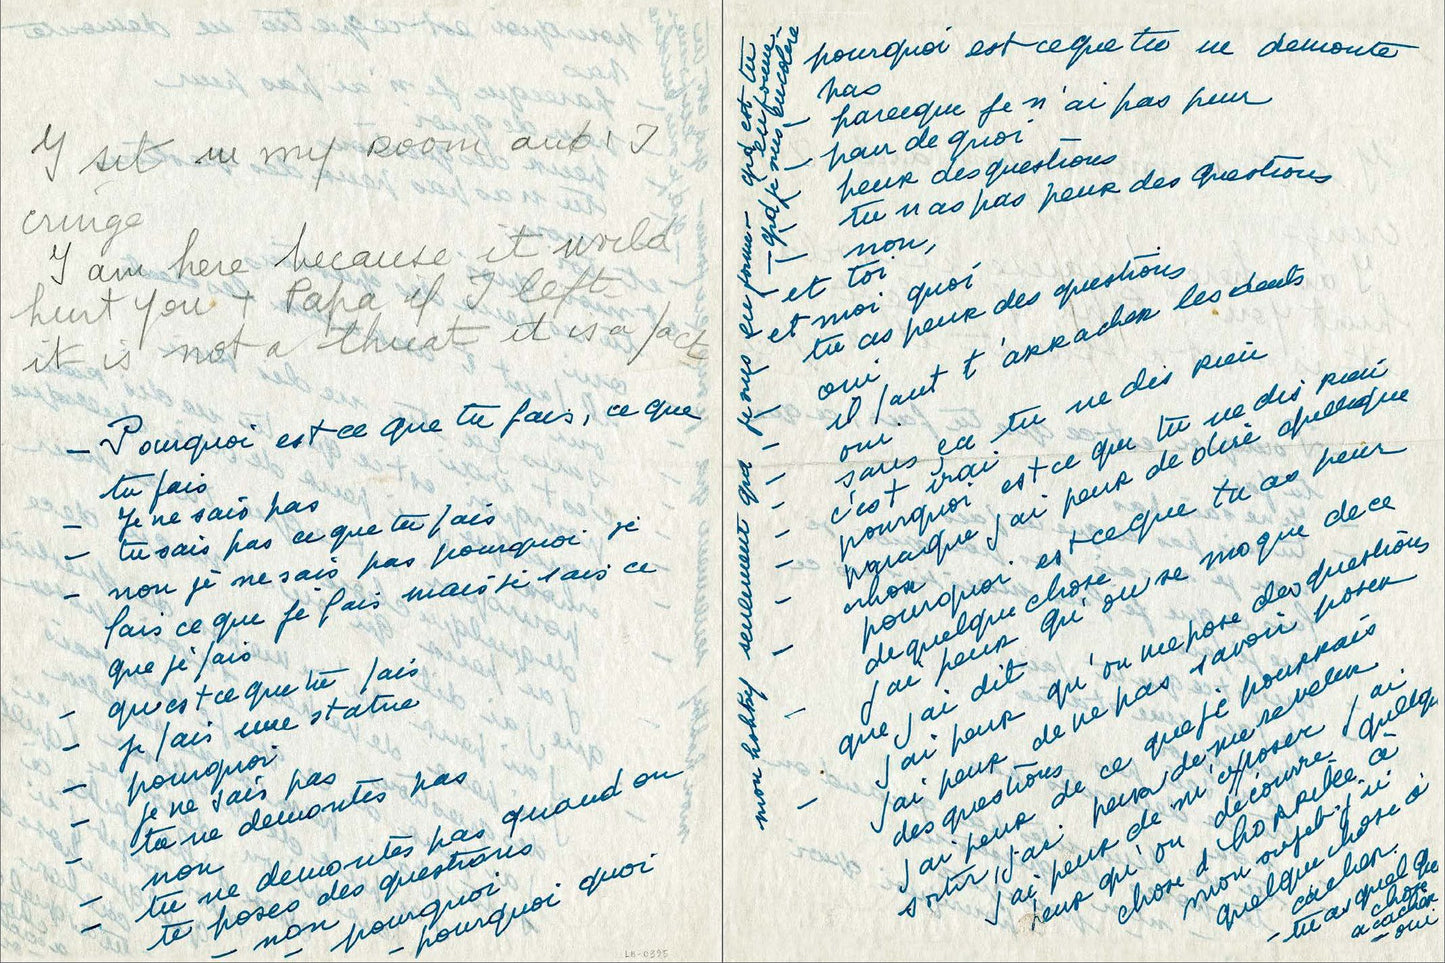 I sit in my room and I
cringe
I am here because it would
hurt you + Papa if I left
it is not a threat it is a fact
- Pourquoi est-ce que tu fais, ce que
tu fais
- je ne sais pas
- tu sais pas ce que tu fais
- non je ne sais pas pourquoi je
fais ce que je fais mais je sais ce
que je fais
- qu'est ce que tu fais
- je fais une statue
- pourquoi
- je ne sais pas
- tu ne demontes pas
- non
- tu ne demontes pas quand on
te poses des questions
- non pourquoi
- pourquoi quoi
LB-0395
pourquoi est-ce que tu ne demonte
pas
- parceque je n'ai pas peur
- peur de quoi
- peur des questions
- tu n as pas peur des questions
- non,
- et toi
- et moi quoi
- tu as peur des questions
- oui
- il faut t'arracher les dents
- oui
- sans ça tu ne dis rien
- c'est vrai
- pourquoi est-ce que tu ne dis rien
- parceque j'ai peur de dire quelque
chose
- pourquoi est-ce que tu as peur
de quelque chose
- j'ai peur qu'on se moque de ce
que j'ai dit
- j'ai peur qu'on me pose des questions
j'ai peur de ne pas savoir poser
des questions
j'ai peur de ce que je pourrais
sortir, j'ai peur de me reveler
j'ai peur de m'exposer j'ai
peur qu'on découvre quelq
chose d'horrible à
mon sujet j'ai
quelque chose à
cacher.
- tu as quelque
chose
a cacher
- oui
mon hobby seulement qd je suis en forme - qd est tu
en forme -
- qd je suis en colère